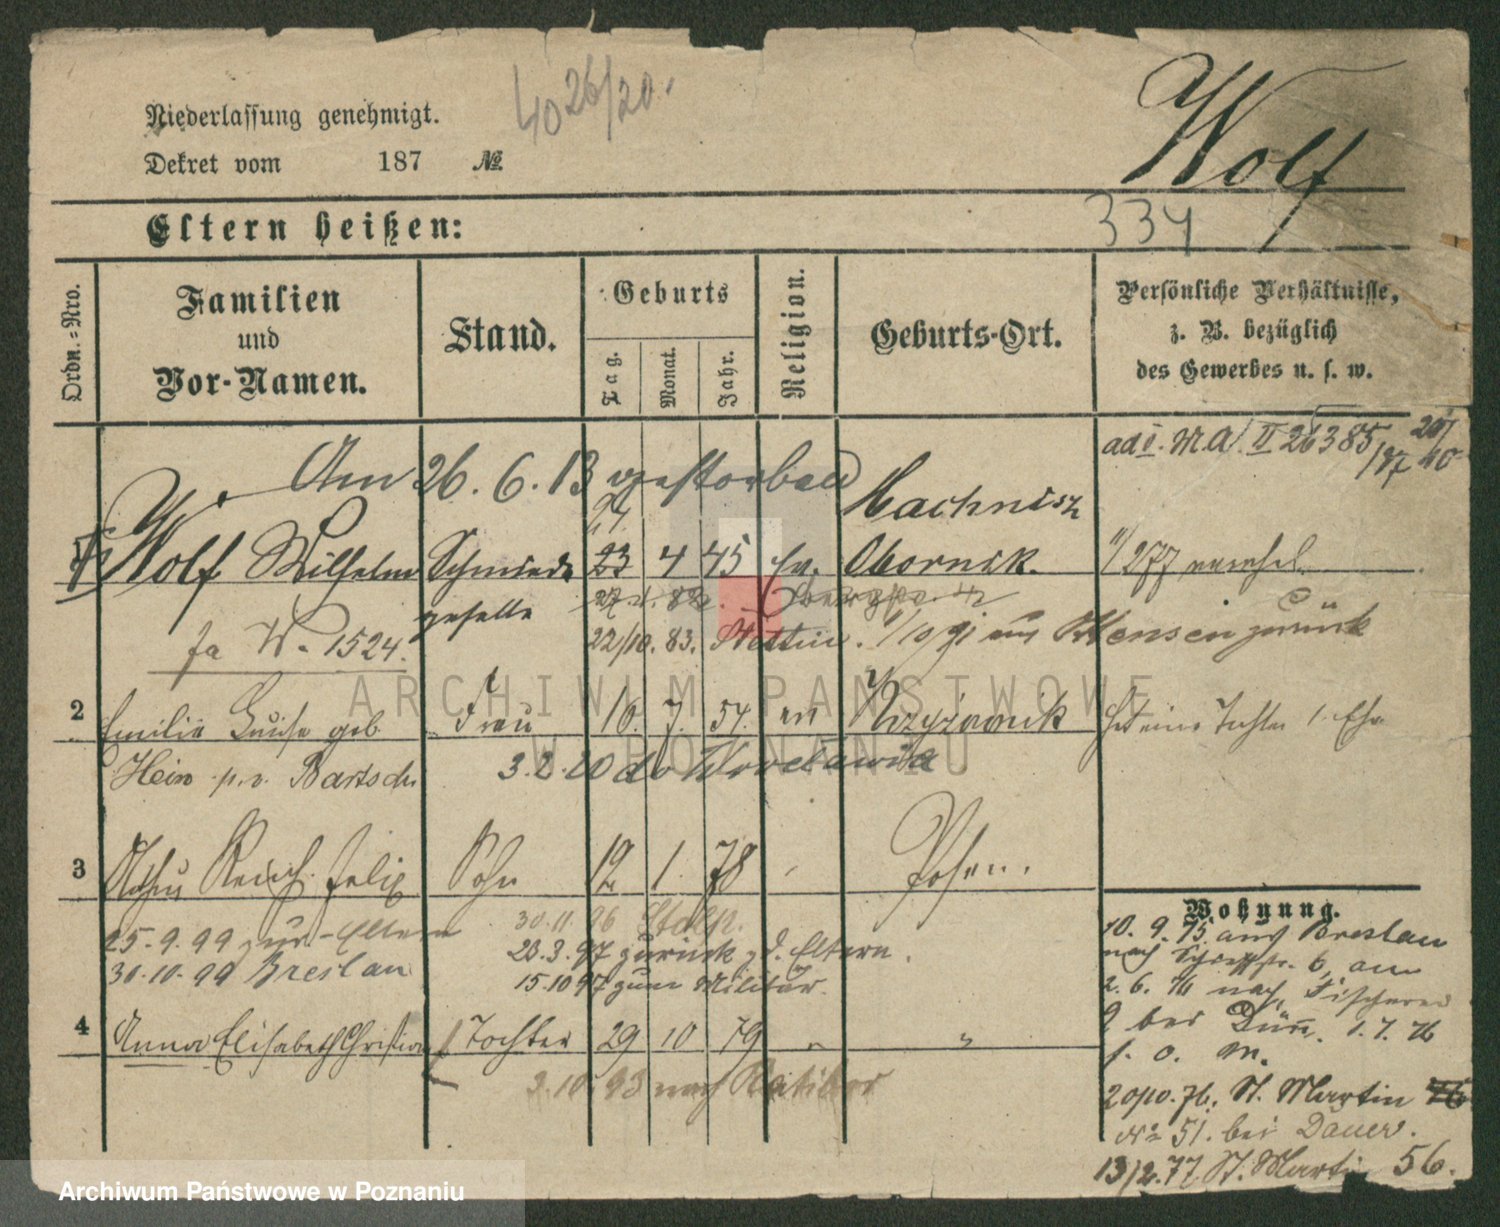 4026/20.
Niederlassung genehmigt.
Dekret vom 187 №
Wolf
334
Eltern heißen:
Ordn.=Nro.
Familien und Vor-Namen.
Stand.
Geburts
Tag. Monat. Jahr.
Religion.
Geburts-Ort.
Persönliche Verhältnisse,
z. B. bezüglich
des Gewerbes u. s. w.
ad I. M.A. II 26385/97
Am 26.6.13 gestorben
Machnisz
24
1 Wolf Wilhelm Schmiede 23 4 45 ev. Obornik.
geselle
fa W. 1524.
22/10. 83. Stettin. zurück
2 Emilie Luise geb. Frau 16. 7. 54. ev
Hein p.v. Bartsch
3.2.20 do Wrocławia
3 Felix Sohn 12 1. 78 Posen.
25.-9.99 zur Eltern
30.11.96
23.3.97 zurück z. d. Eltern.
30.10.99 Breslau
15.10 97 zum Militär.
4 Anna Elisabeth Christian Tochter 29 10 79 " "
3.10.93 nach Ratibor
Wohnung.
10. 9. 75. aus Breslau
nach 6, am
2. 6. 76 nach Fischerei
9 bei 1.7.76
f. o. m.
20/10. 76. St. Martin 76
No 51. bei Bauer.
13/2.77 St. Martin 56.
ARCHIWUM PAŃSTWOWE
W POZNANIU
Archiwum Państwowe w Poznaniu